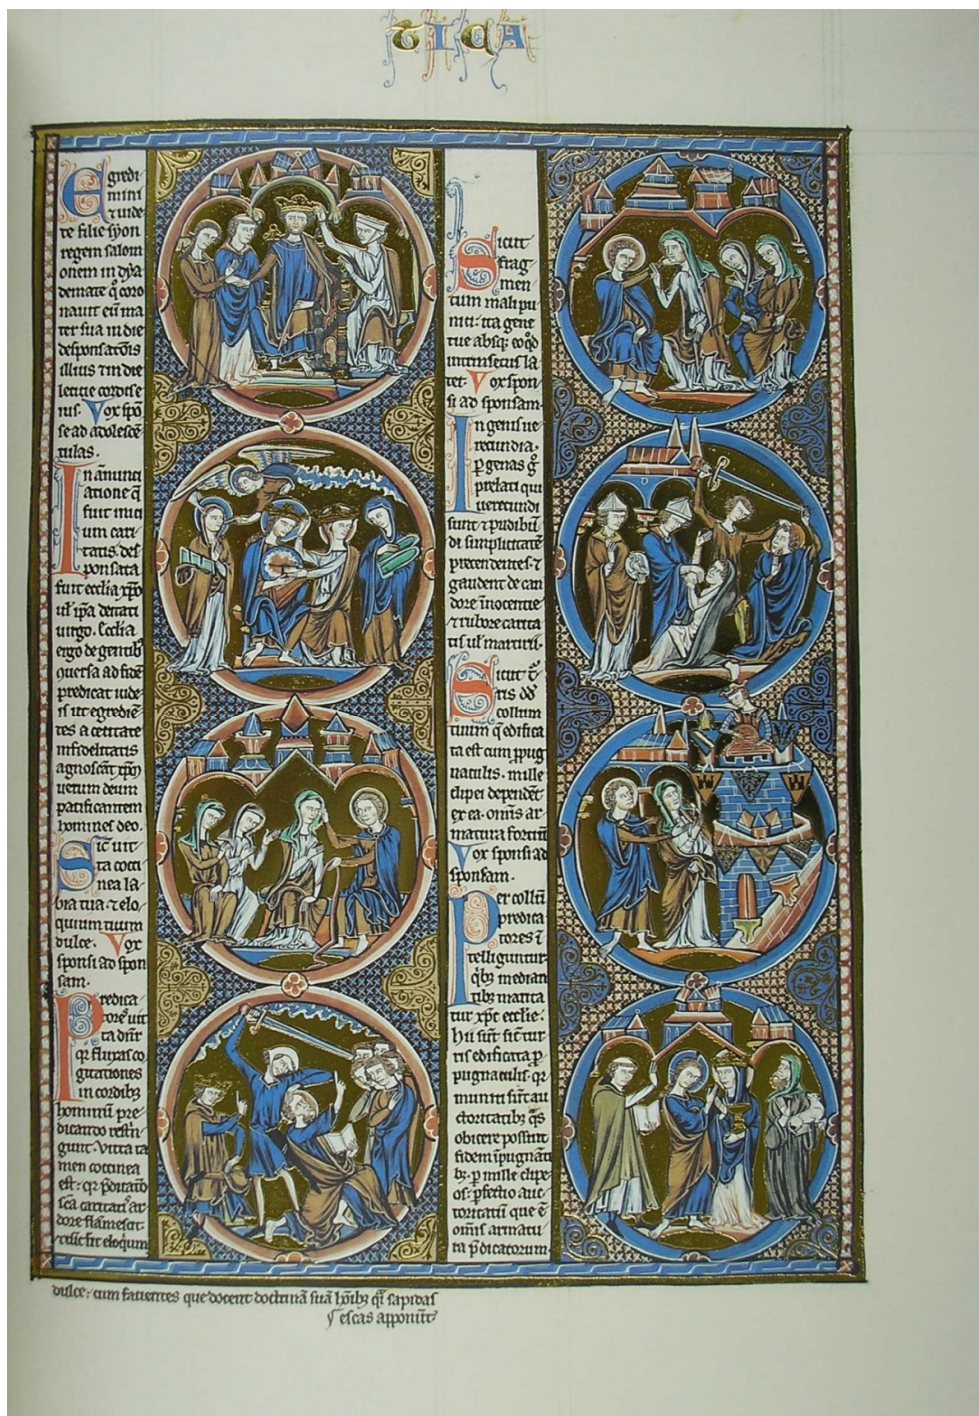 TICA
Egredi
mini
⁊ uide
te filie syon
regem salom
onem in dya
demate q̇ coro
nauit eū ma
ter sua in die
desponsatōis
illius ⁊ in die
leticie cordis e
ius. Vox spō
se ad adolescē
tulas.
In ānunci
atione q̄
fuit inici
um cari
tatis. des
ponsata
fuit ecclīa xp̄o
ul' ip̄a deitati
uirgo. Ecclīa
ergo de gentibꝰ
ꝯuersa ad fidē
predicat iude
is ut egrediē
tes a cecitate
infidelitatis
agnoscāt xp̄m
uerum deum
pacificantem
homines deo.
Sic̄ uit
ta cocci
nea la
bia tua ⁊ elo
quium tuum
dulce. Vox
sponsi ad spon
sam.
Predica
tores uit
ta dn̄r
qr̄ fluxas co
gitationes
in cordibꝫ
hominū pre
dicando restrī
gunt. Vitta ta
men coccinea
est: qr̄ p̄dicatō
sc̄a caritatꝭ ar
dore flāmescit
⁊ sic fit eloq̇um
dulce: cum facientes que docent doctrinā suā hōibꝫ q̄i sapidas
escas apponūt
Sicut
frag
men
tum mali pu
nici. ita gene
tue absqꝫ eo qd̓
intrinsecus la
tet. Vox spon
si ad sponsam.
In genis ue
recundia.
ꝑ genas g̊
prelati qui
uerecundi
sunt ⁊ pudibū
di simplicitate
precendentes. ⁊
gaudent de can
dore īnocentie
⁊ rubore carita
tis ul' martirii.
Sicut t᷑
ris dd̄
collum
tuum q̄ edifica
ta est cum ꝓpug
naculis. mille
clipei dependēt
ex ea. omīs ar
matura fortiū
Vox sponsi ad
sponsam.
Per collū
predica
tores ī
telliguntur
q̇bꝫ median
tibꝫ manda
tur xp̄c ecclie.
Hii sūt sic̄ tur
ris edificata ꝓ
pugnaculis. qr̄
muniti sūt au
ctoritatibꝫ q̄s
obicere possūt
fidem īpugnāti
bꝫ. ꝑ mille clipe
os: ꝑfectio auc
toritatū que ē
omīs armatu
ra p̄dicatorum.